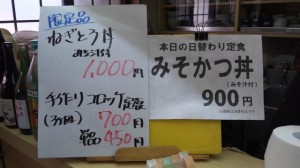 限定品
ねぎとろ丼
みそ汁付
1,000円
手作りコロッケ定食
(3個) 700円
単品 450円
本日の日替わり定食
みそかつ丼
(みそ汁付)
900円